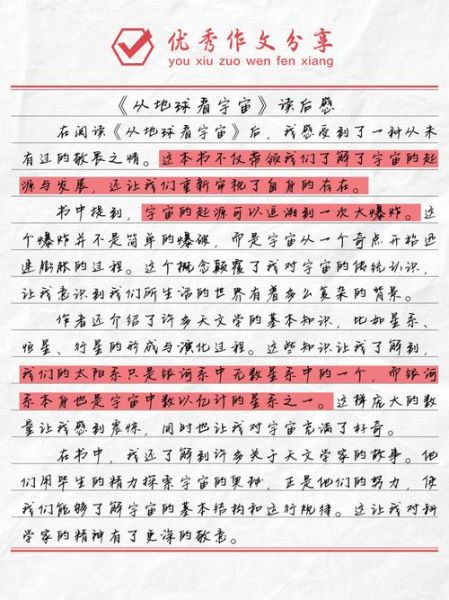 优秀作文分享
you xiu zuo wen fen xiang
《从地球看宇宙》读后感
在阅读《从地球看宇宙》后，我感受到了一种从未
有过的敬畏之情。这本书不仅带领我们了解了宇宙的起
源与发展，还让我们重新审视了自身的存在。
书中提到，宇宙的起源可以追溯到一次大爆炸。这
个爆炸并不是简单的爆破，而是宇宙从一个奇点开始迅
速膨胀的过程。这个概念颠覆了我对宇宙的传统认识，
让我意识到我们所生活的世界有着多么复杂的背景。
作者还介绍了许多天文学的基本知识，比如星系、
恒星、行星的形成与演化过程。这些知识让我了解到，
我们的太阳系只是银河系中无数星系中的一个，而银河
系本身也是宇宙中数以亿计的星系之一。这种庞大的数
量让我感到震惊，同时也让我对宇宙充满了好奇。
在书中，我还了解到许多关于天文学家的故事。他
们用毕生的精力探索宇宙的奥秘，正是他们的努力，使
我们能够了解宇宙的基本结构和运行规律。这让我对科
学家的精神有了更深的敬意。